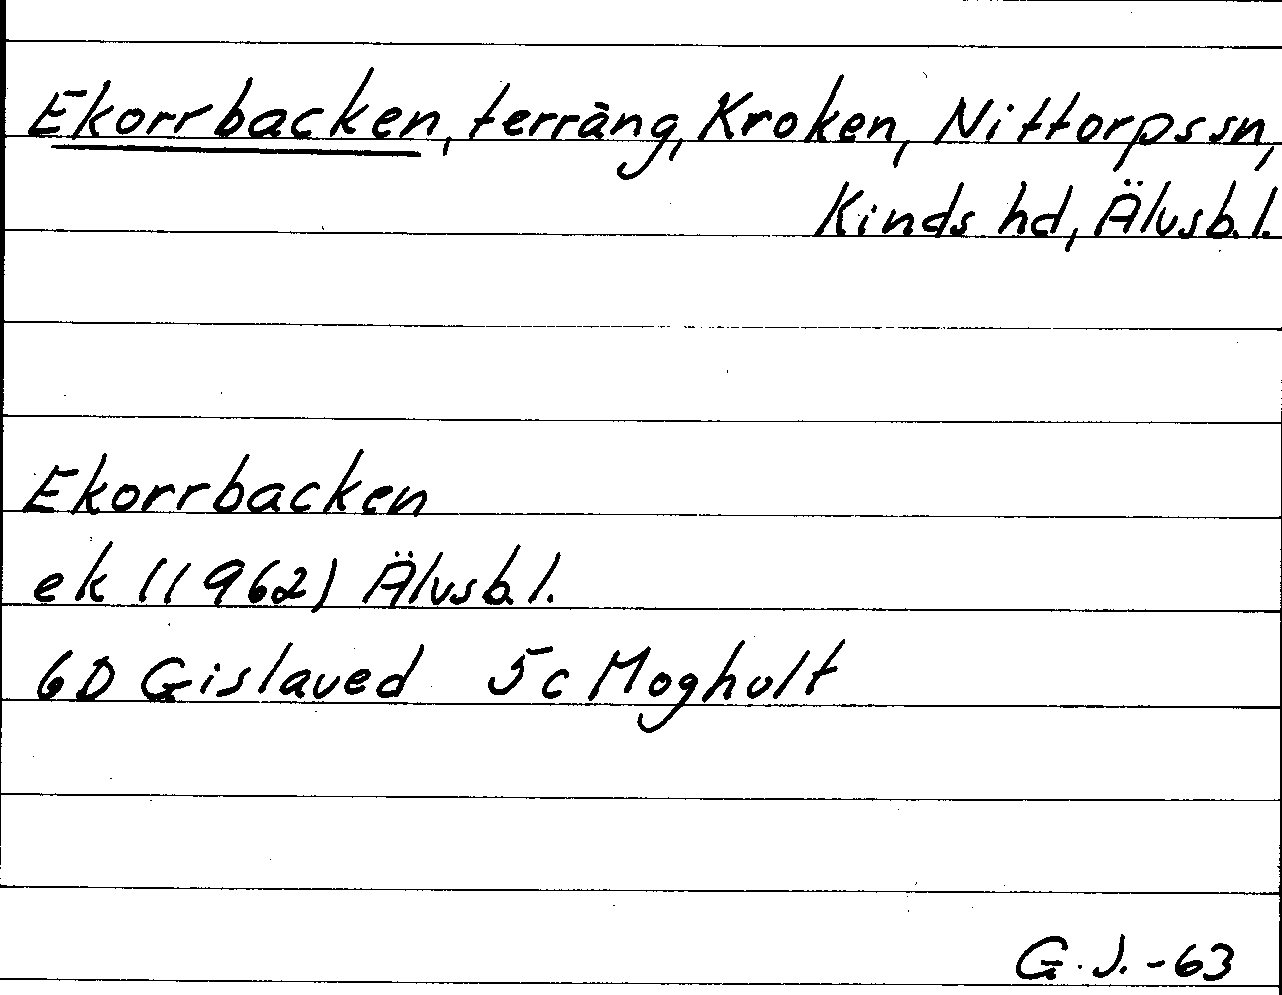 Ekorrbacken, terräng, Kroken, Nittorps sn,
Kinds hd, Älvsb. l.
Ekorrbacken
ek (1962) Älvsb. l.
6D Gislaved 5c Mogholt
G. J. -63